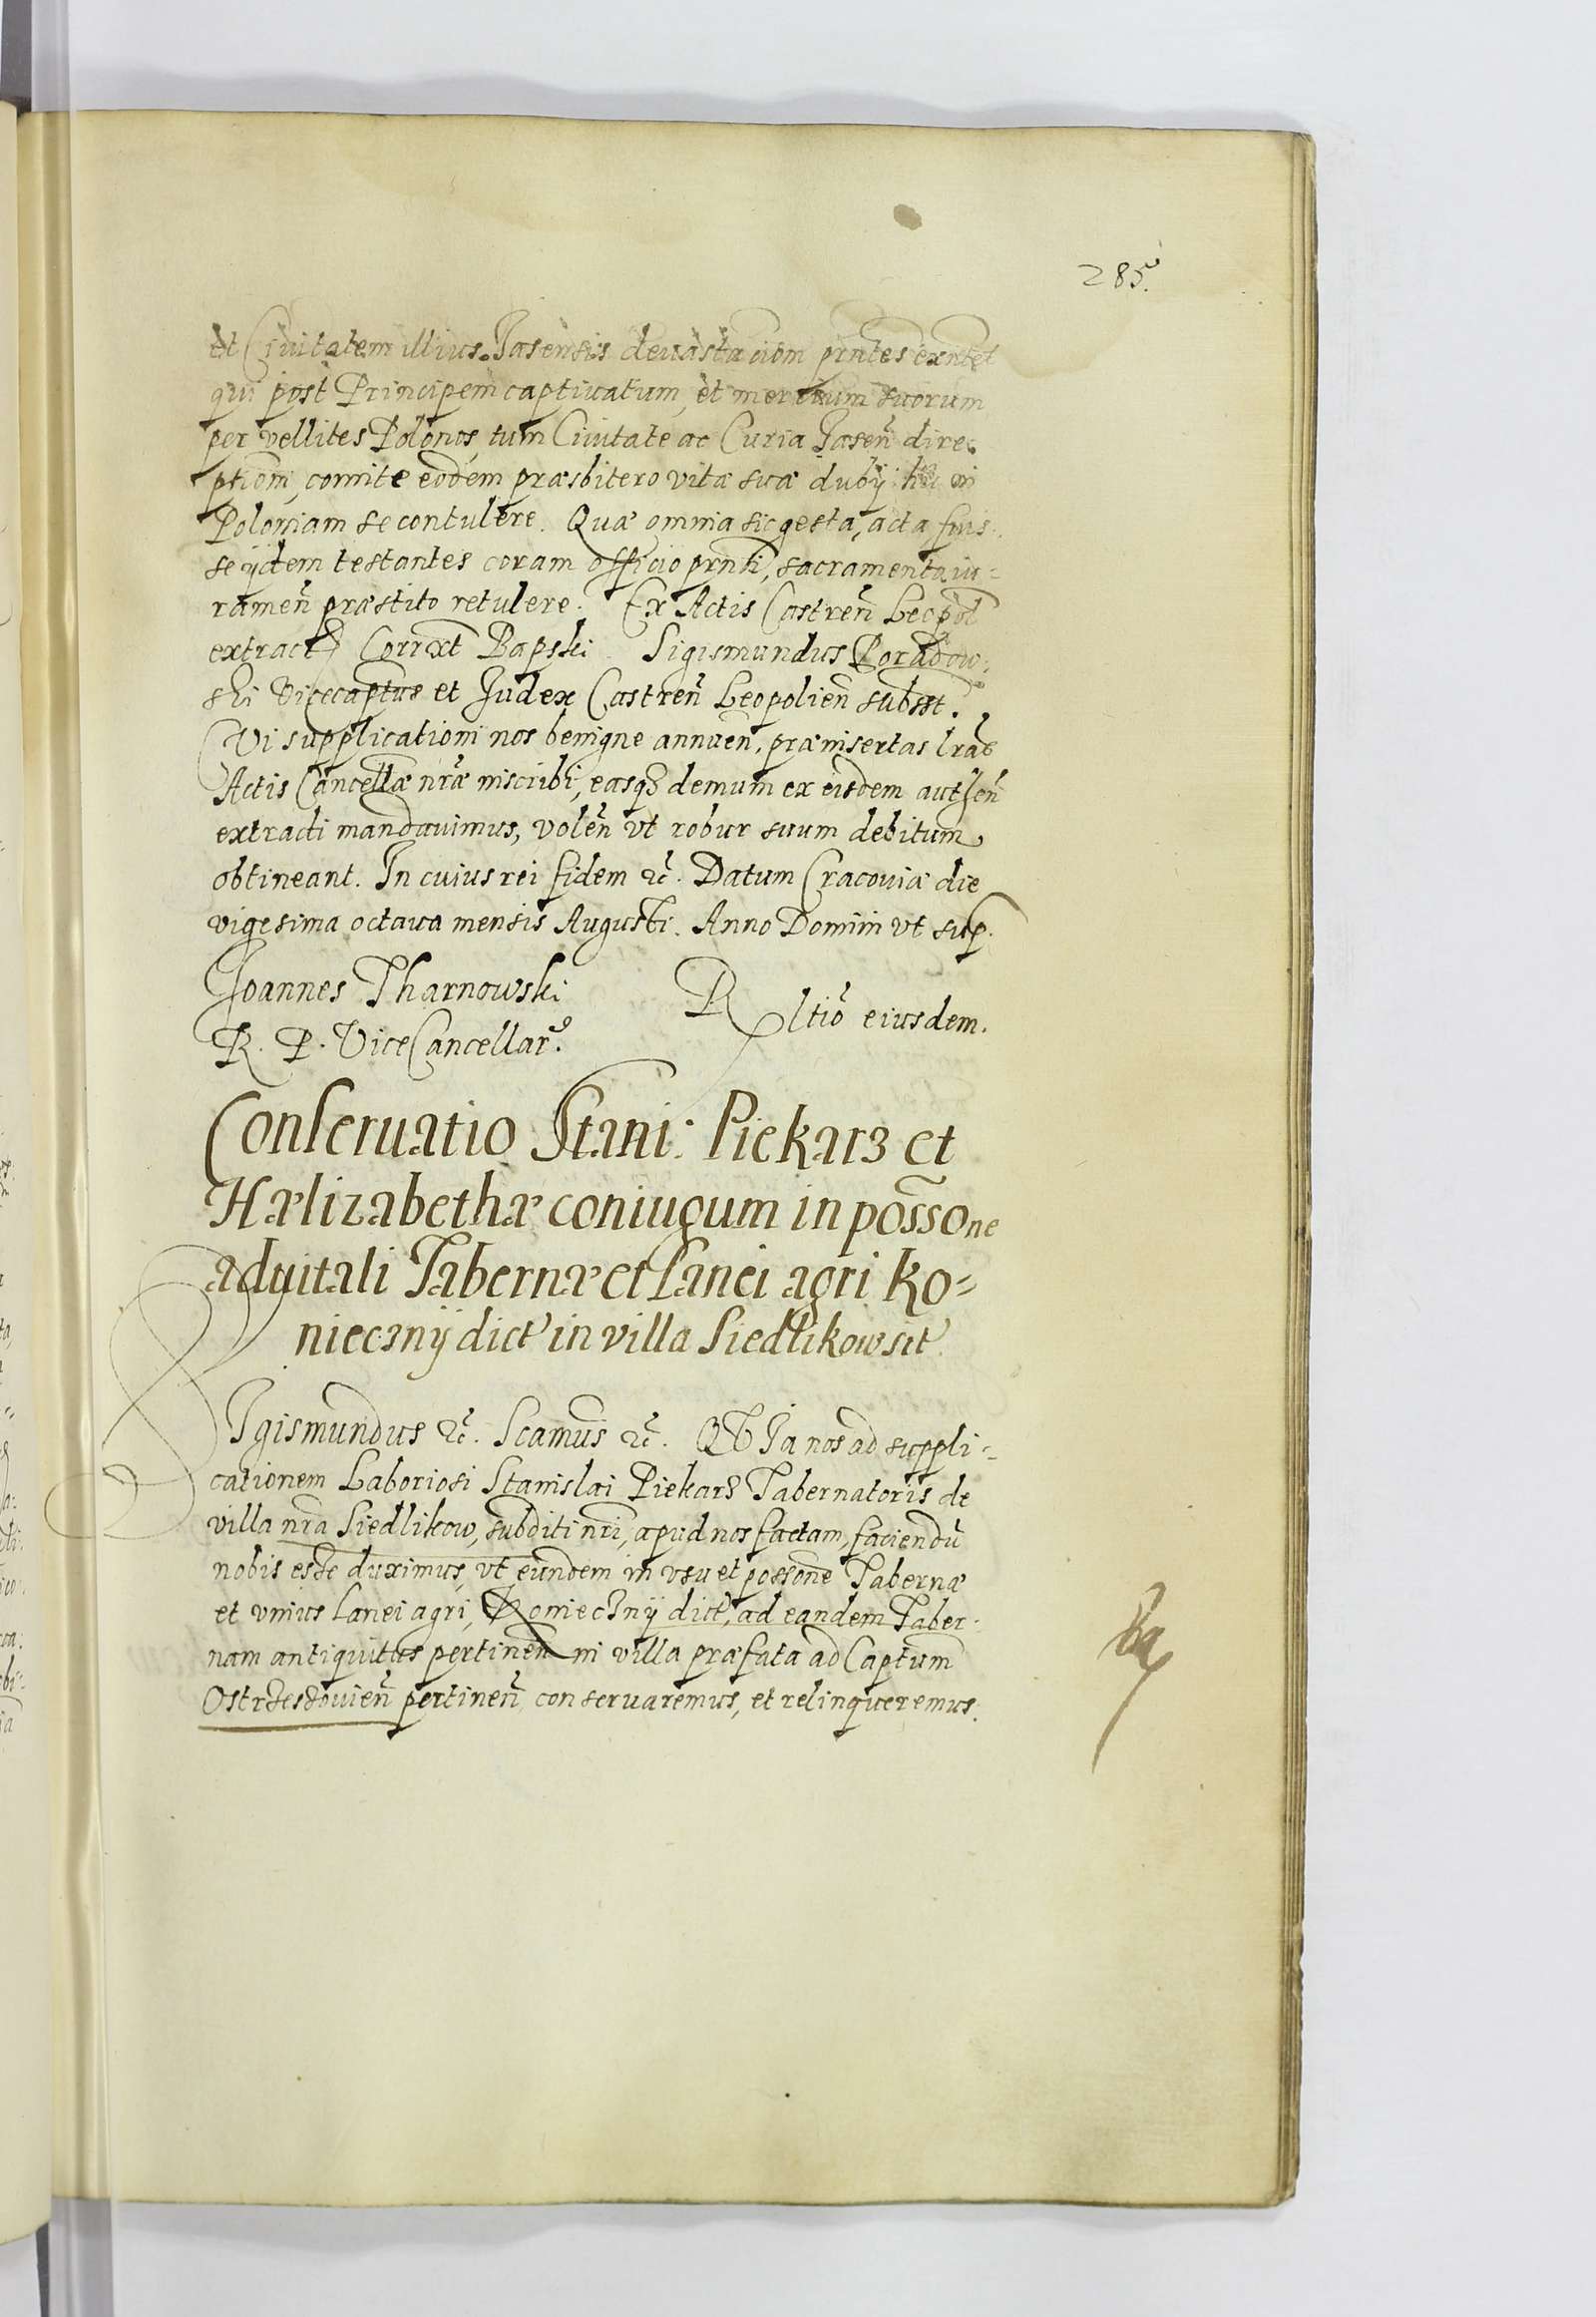 285.
et Ciuitatem illius Jasensis deuastaciom prntes exntet
qui post Principem captiuatum, et suorum
per vellites Polonos, tum Ciuitate ac Curia Jaseñ dire-
ptiom, comite eodem præsbitero vitæ suæ dubij in
Poloniam se contulere. Quæ omnia sic gesta, acta fuis-
se ijdem testantes coram officio prnti, sacramenta iu-
rameñ præstito retulere. Ex Actis Castreñ Leopol
extract Corrxt Bapski. Sigismundus Poradow-
ski Vicecaptus et Judex Castreñ Leopolieñ subsst.
Vi supplicationi nos benigne annueñ, præinsertas lras
Actis Cancellæ nræ inscribi, easq3 demum ex eisdem autheñ
extracti mandauimus, voleñ vt robur suum debitum
obtineant. In cuius rei fidem &c. Datum Cracouiæ die
vigesima octaua mensis Augusti. Anno Domini vt sup.
Joannes Tharnowski
R. P. ViceCancellar9.
Rltio eiusdem.
Conseruatio Stani: Piekarz et
Hælizabethæ coniugum in possone
aduitali Tabernæ et Lanei agri Ko=
niecznÿ dict in villa Siedlikow sit.
SIgismundus &c. Scamus &c. Qt Ia nos ad suppli=
cationem Laboriosi Stanislai Piekarz Tabernatoris de
villa nra Siedlikow, subditi nri, apud nos factam, faciendu
nobis esse duximus, vt eundem in vsu et possone Tabernæ
et vnius Lanei agri, Koniecznÿ dict, ad eandem Taber-
nam antiquitus pertineñ in villa præfata ad Captum
Ostrzeszouieñ pertineñ conseruaremus, et relinqueremus.